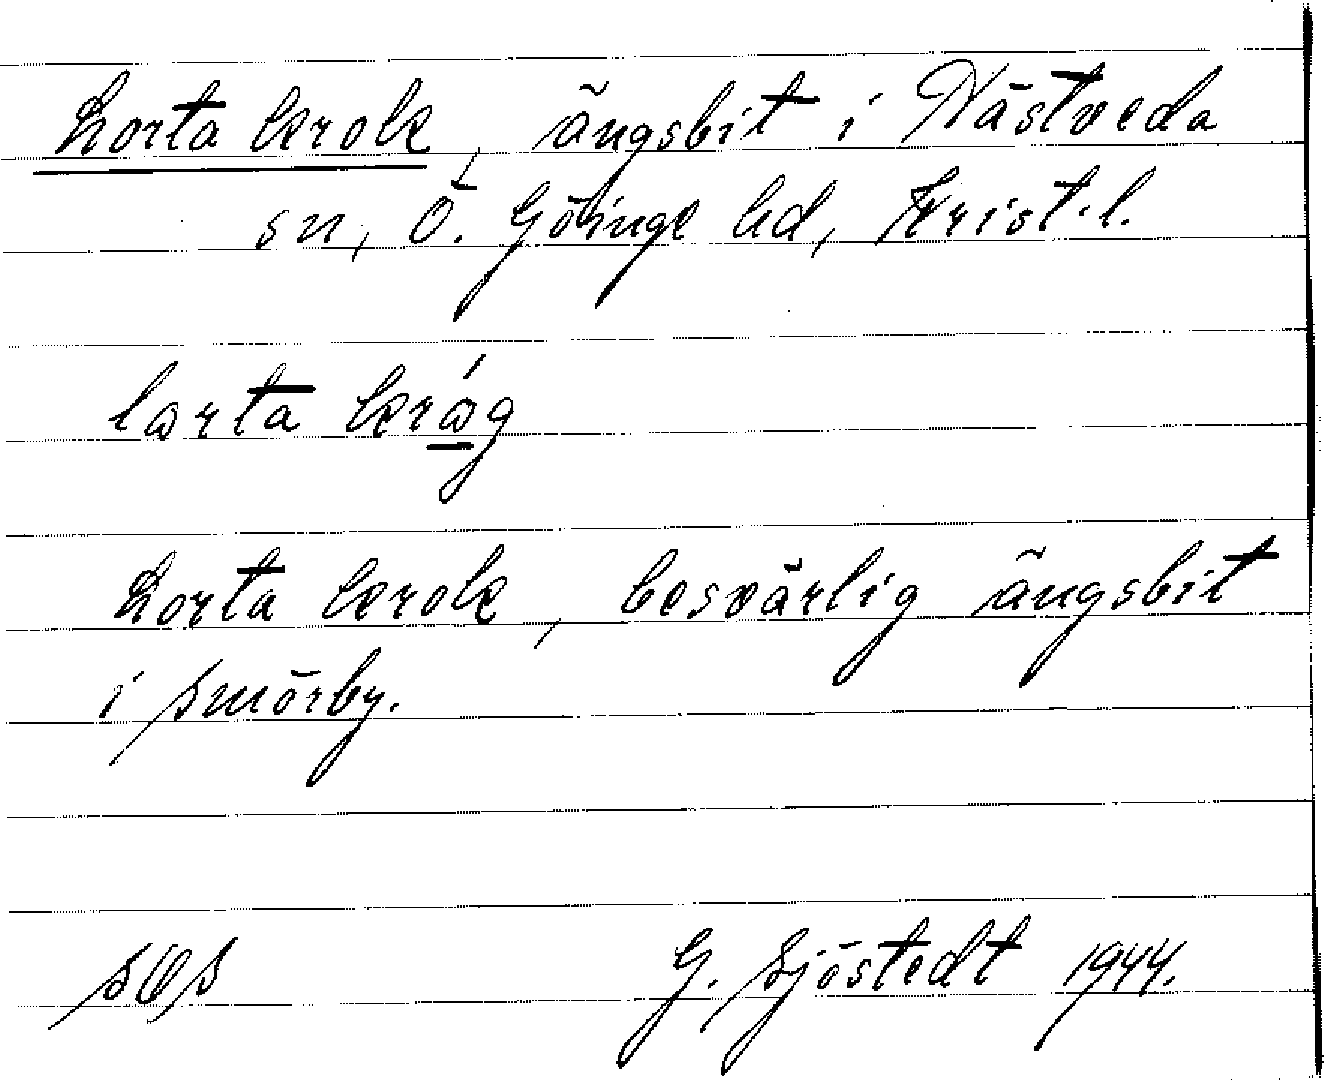 Lorta krok, ängsbit i Nästveda
sn, Ö. Göinge hd, Krist. l.
lorta kråg
Lorta krok, besvärlig ängsbit
i Smörby.
G. Sjöstedt 1944.